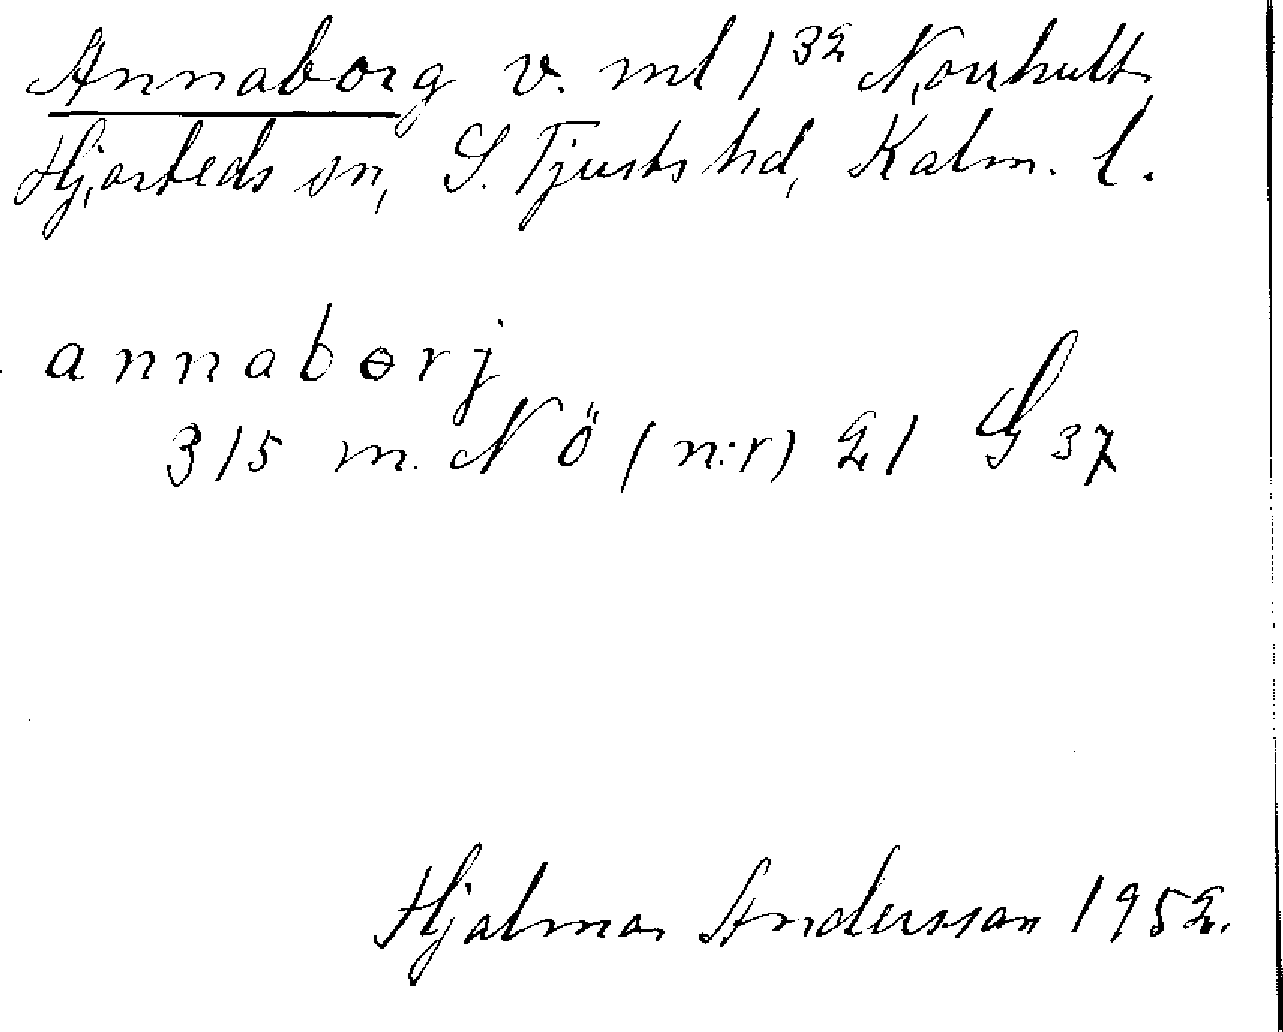 Annaborg v. ml 1³² Norrhult
Hjorteds sn, S. Tjusts hd, Kalm. l.
annabɵrj
315 m. N Ö (n:r) 21 G 37
Hjalmar Andersson 1952.